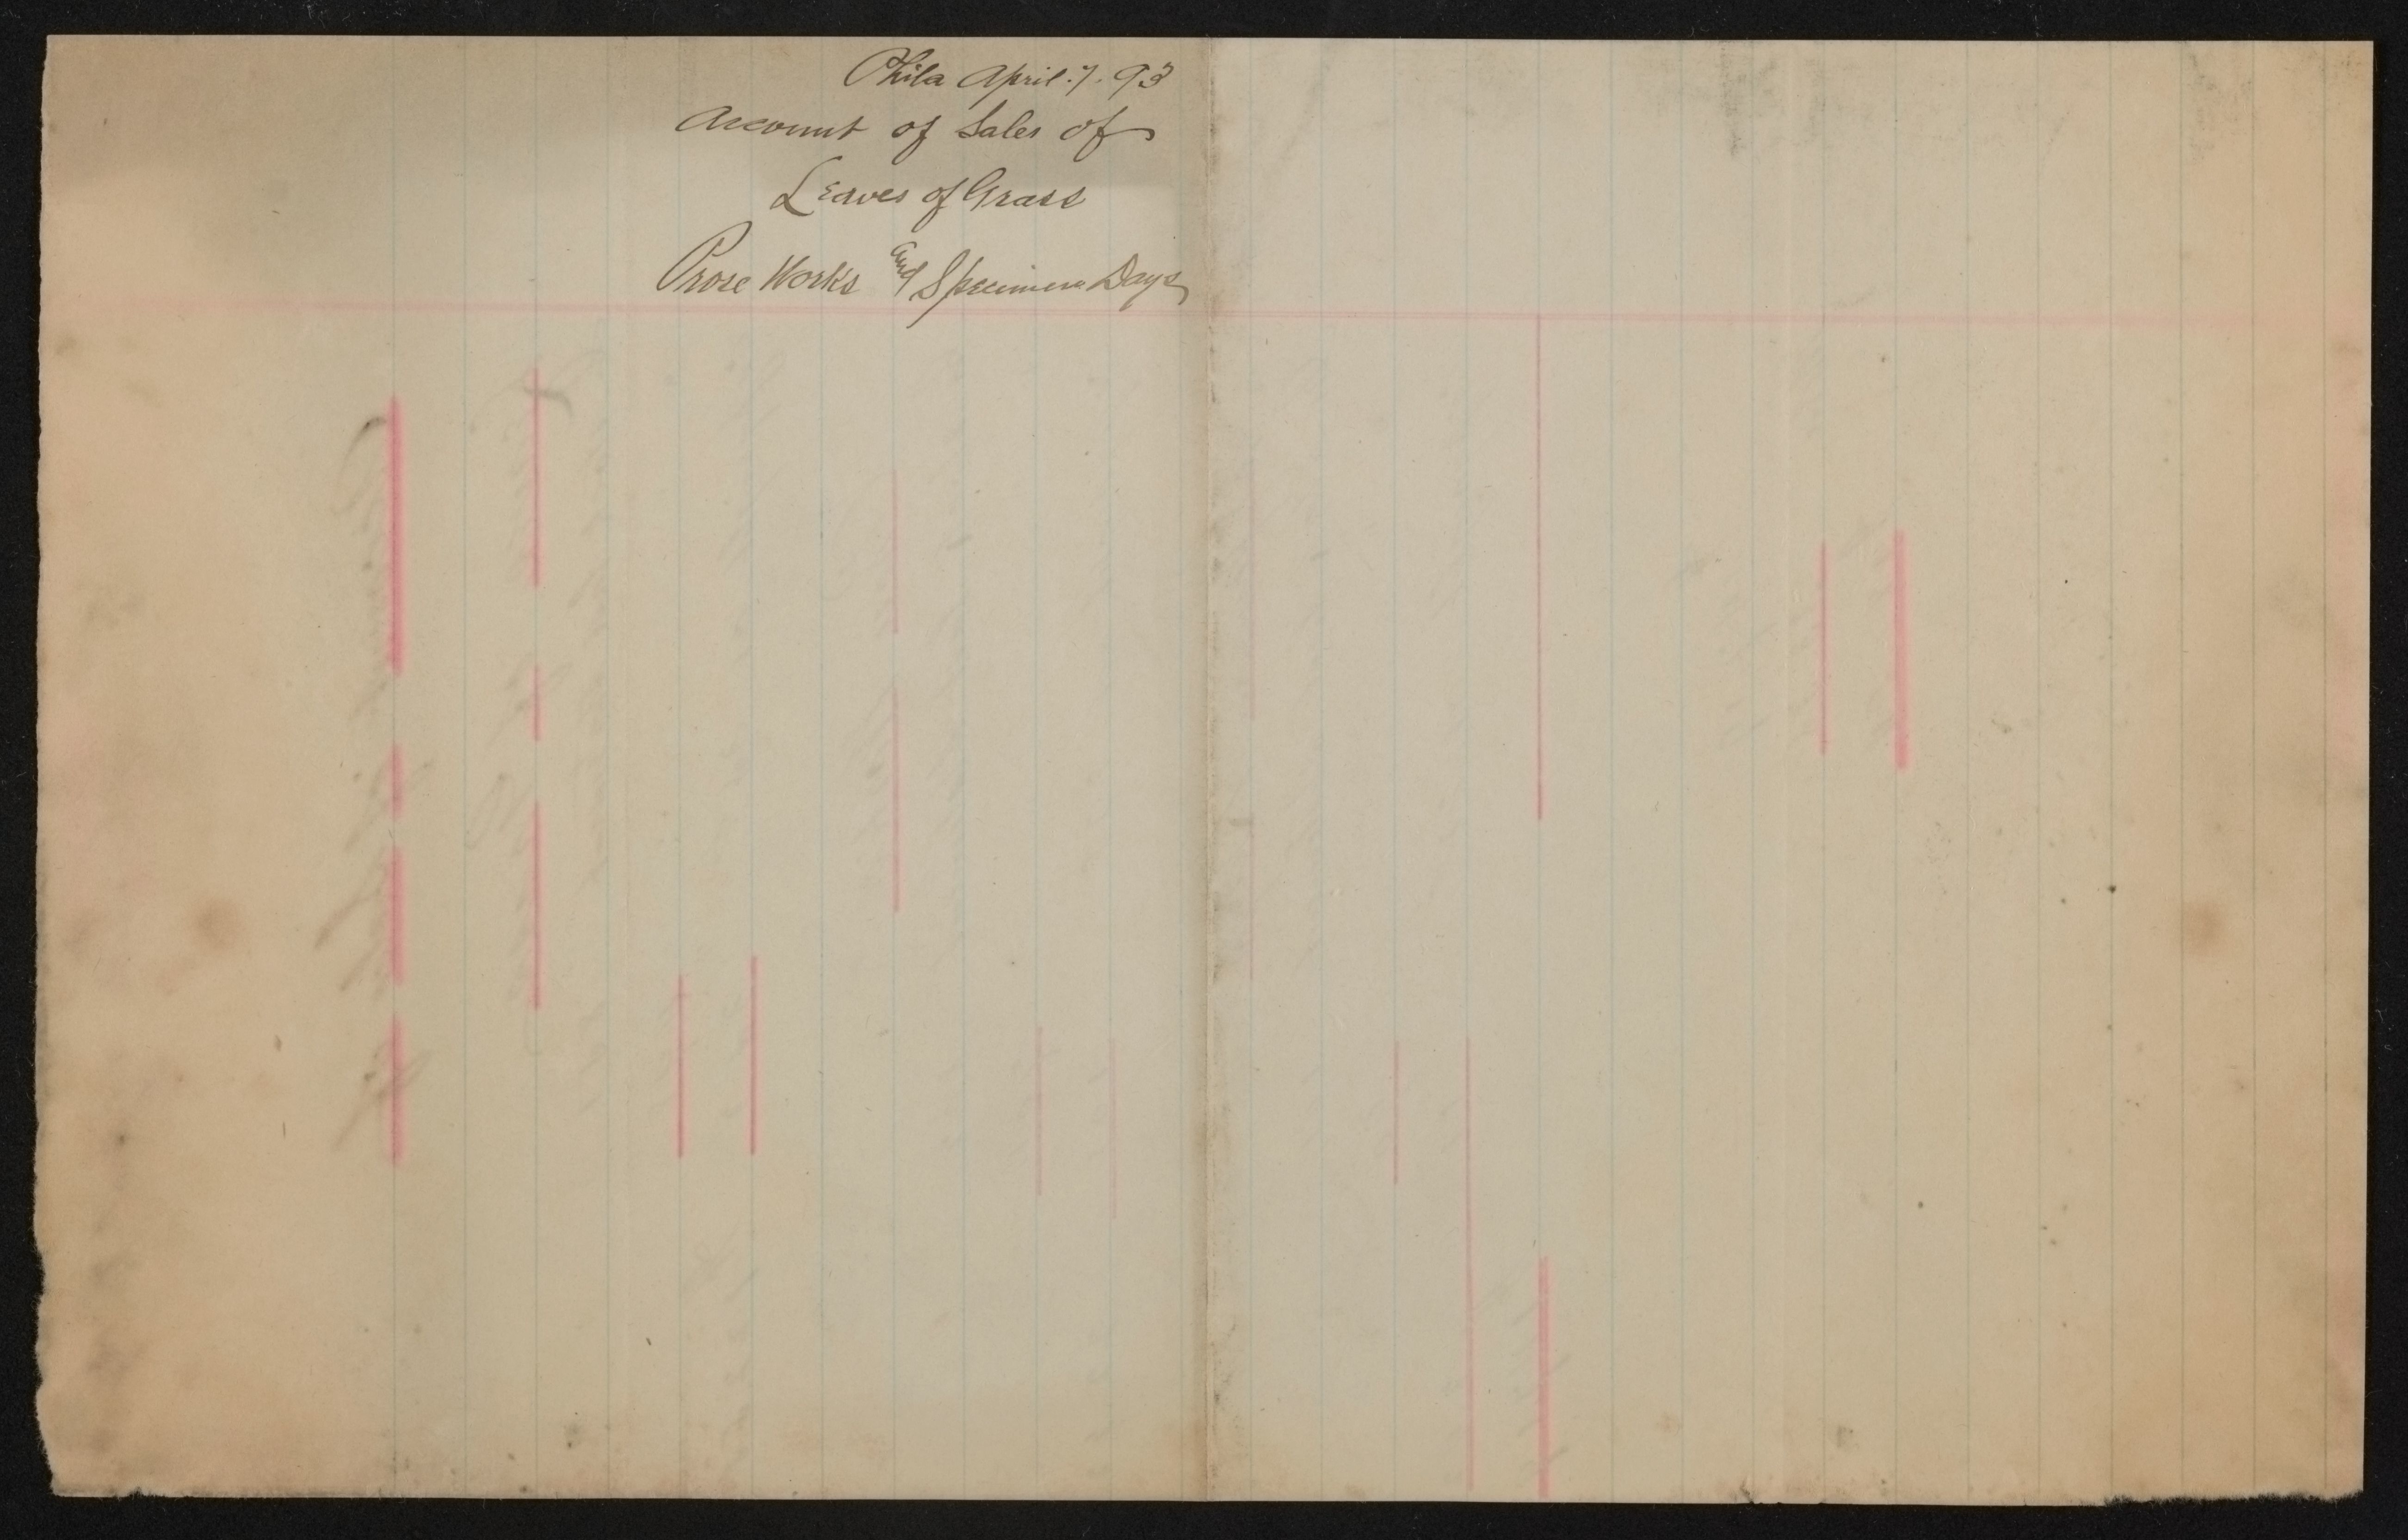 Phila April. 7. 93
Account of Sales of
Leaves of Grass
Prose Works and Specimen Days